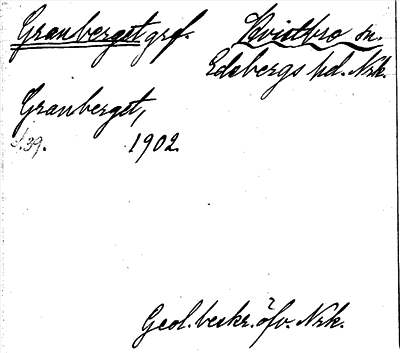 Granberget grf. Kvistbro sn.
Edsbergs hd. Nrk.
Granberget,
s. 39. 1902
Geol. beskr. öfv. Nrk.